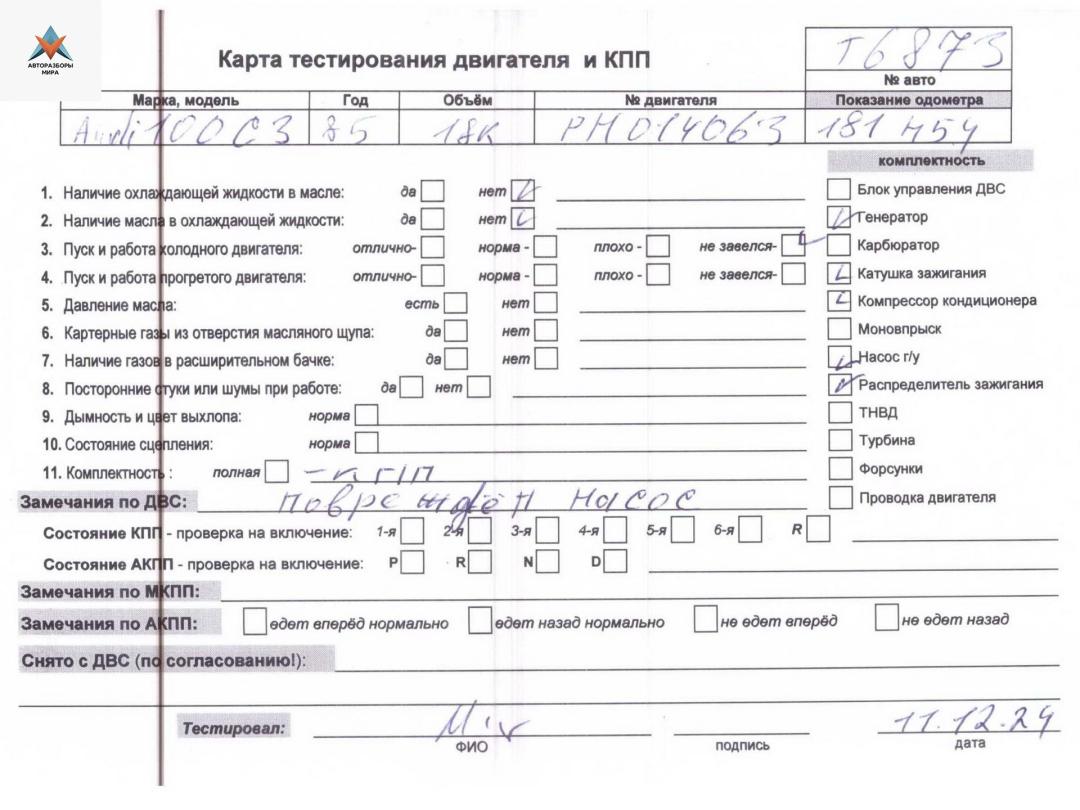 АВТОРАЗБОРЫ
МИРА
Карта тестирования двигателя и КПП
Т6873
№ авто
Марка, модель Год Объём № двигателя Показание одометра
Audi 100 C3 85 1.8к PH014063 181 454
комплектность
1. Наличие охлаждающей жидкости в масле: да нет
Блок управления ДВС
2. Наличие масла в охлаждающей жидкости: да нет
Генератор
3. Пуск и работа холодного двигателя: отлично- норма - плохо - не завелся-
Карбюратор
4. Пуск и работа прогретого двигателя: отлично- норма - плохо - не завелся-
Катушка зажигания
5. Давление масла: есть нет
Компрессор кондиционера
6. Картерные газы из отверстия масляного щупа: да нет
Моновпрыск
7. Наличие газов в расширительном бачке: да нет
Насос г/у
8. Посторонние стуки или шумы при работе: да нет
Распределитель зажигания
9. Дымность и цвет выхлопа: норма
ТНВД
10. Состояние сцепления: норма
Турбина
11. Комплектность : полная
Форсунки
Замечания по ДВС: Повреждён насос
Проводка двигателя
Состояние КПП - проверка на включение: 1-я 2-я 3-я 4-я 5-я 6-я R
Состояние АКПП - проверка на включение: P R N D
Замечания по МКПП:
Замечания по АКПП: едет вперёд нормально едет назад нормально не едет вперёд не едет назад
Снято с ДВС (по согласованию!):
Тестировал:
11.12.24
ФИО подпись дата